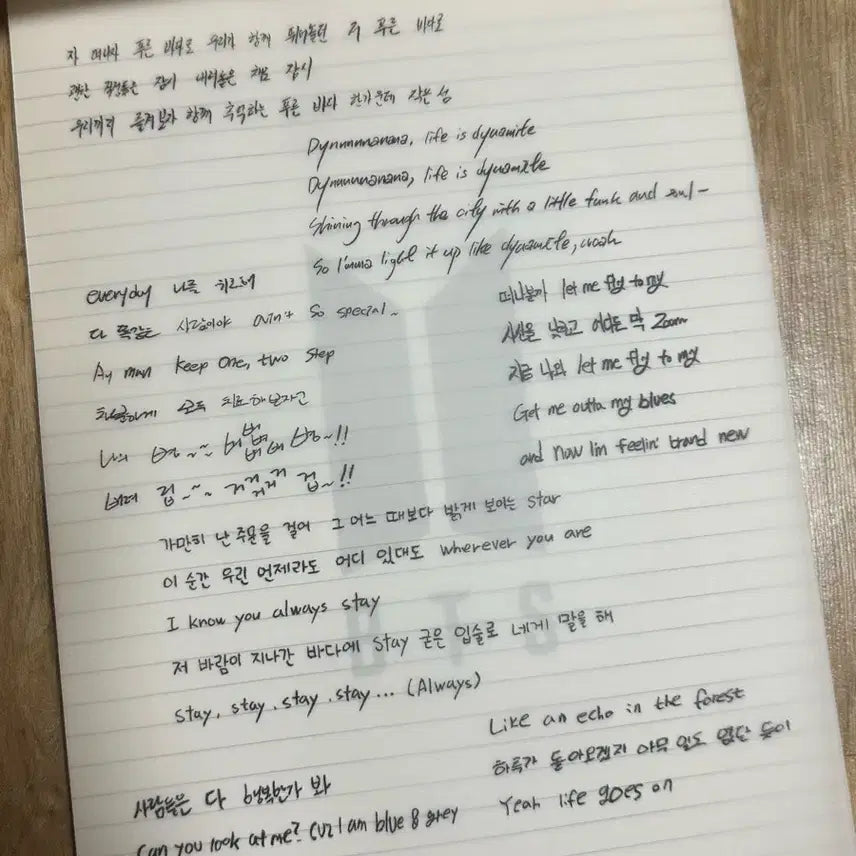 자 떠나자 푸른 바다로 우리가 함께 뛰어놀던 저 푸른 바다로
괜한 걱정들은 잠시 내려놓은 채로 잠시
우리끼리 즐겨보자 함께 추억하는 푸른 바다 한가운데 작은 섬
Dynnnnnanana, life is dynamite
Dynnnnnanana, life is dynamite
Shining through the city with a little funk and soul-
So I'mma light it up like dynamite, woah
everyday 나를 위로해
다 똑같은 사람이야 ain't so special~
Ay man keep one, two step
차분하게 모두 치료해보자고
나의
겁~!!
떠나볼까 let me fly to my
시선을 낮추고 어디든 막 Zoom
지금 나와 let me fly to my
Get me outta my blues
and now I'm feelin' brand new
가만히 난 주문을 걸어 그 어느 때보다 밝게 보이는 star
이 순간 우린 언제라도 어디 있대도 wherever you are
I know you always stay
저 바람이 지나간 바다에 stay 굳은 입술로 네게 말을 해
stay, stay, stay, stay... (Always)
Like an echo in the forest
하루가 돌아오겠지 아무 일도 없단 듯이
Yeah life goes on
사람들은 다 행복한가 봐
Can you look at me? Cuz I am blue & grey
BTS